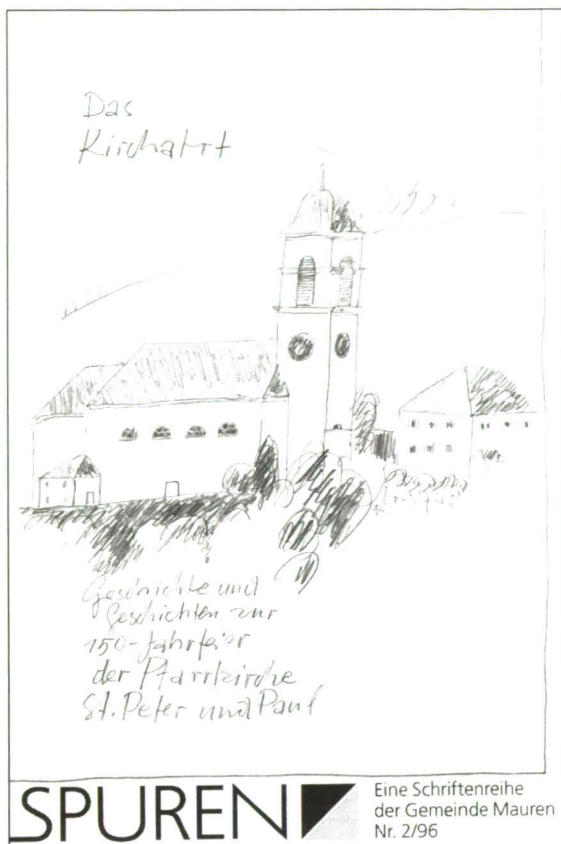 Das
Kirchahrt
Geschichte und
Geschichten zur
150-Jahrfeier
der Pfarrkirche
St. Peter und Paul
SPUREN
Eine Schriftenreihe
der Gemeinde Mauren
Nr. 2/96